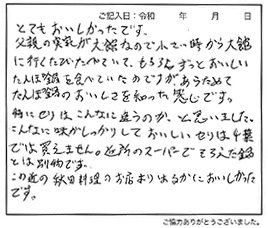 ご記入日：令和　年　月　日
とてもおいしかったです。
父親の実家が大館なので小さい時から大館
に行くたびたべていて、もちろんずっとおいしい
たんぽ鍋を食べていたのですが、あらためて
たんぽ鍋のおいしさを知った感じです。
特にせりは、こんなに違うのか、と思いました。
こんなに味がしっかりしておいしいせりは千葉
では買えません。近所のスーパーでそろえた鍋
とは別物です。
この近の秋田料理のお店よりはるかにおいしかった
です。
ご協力ありがとうございました。